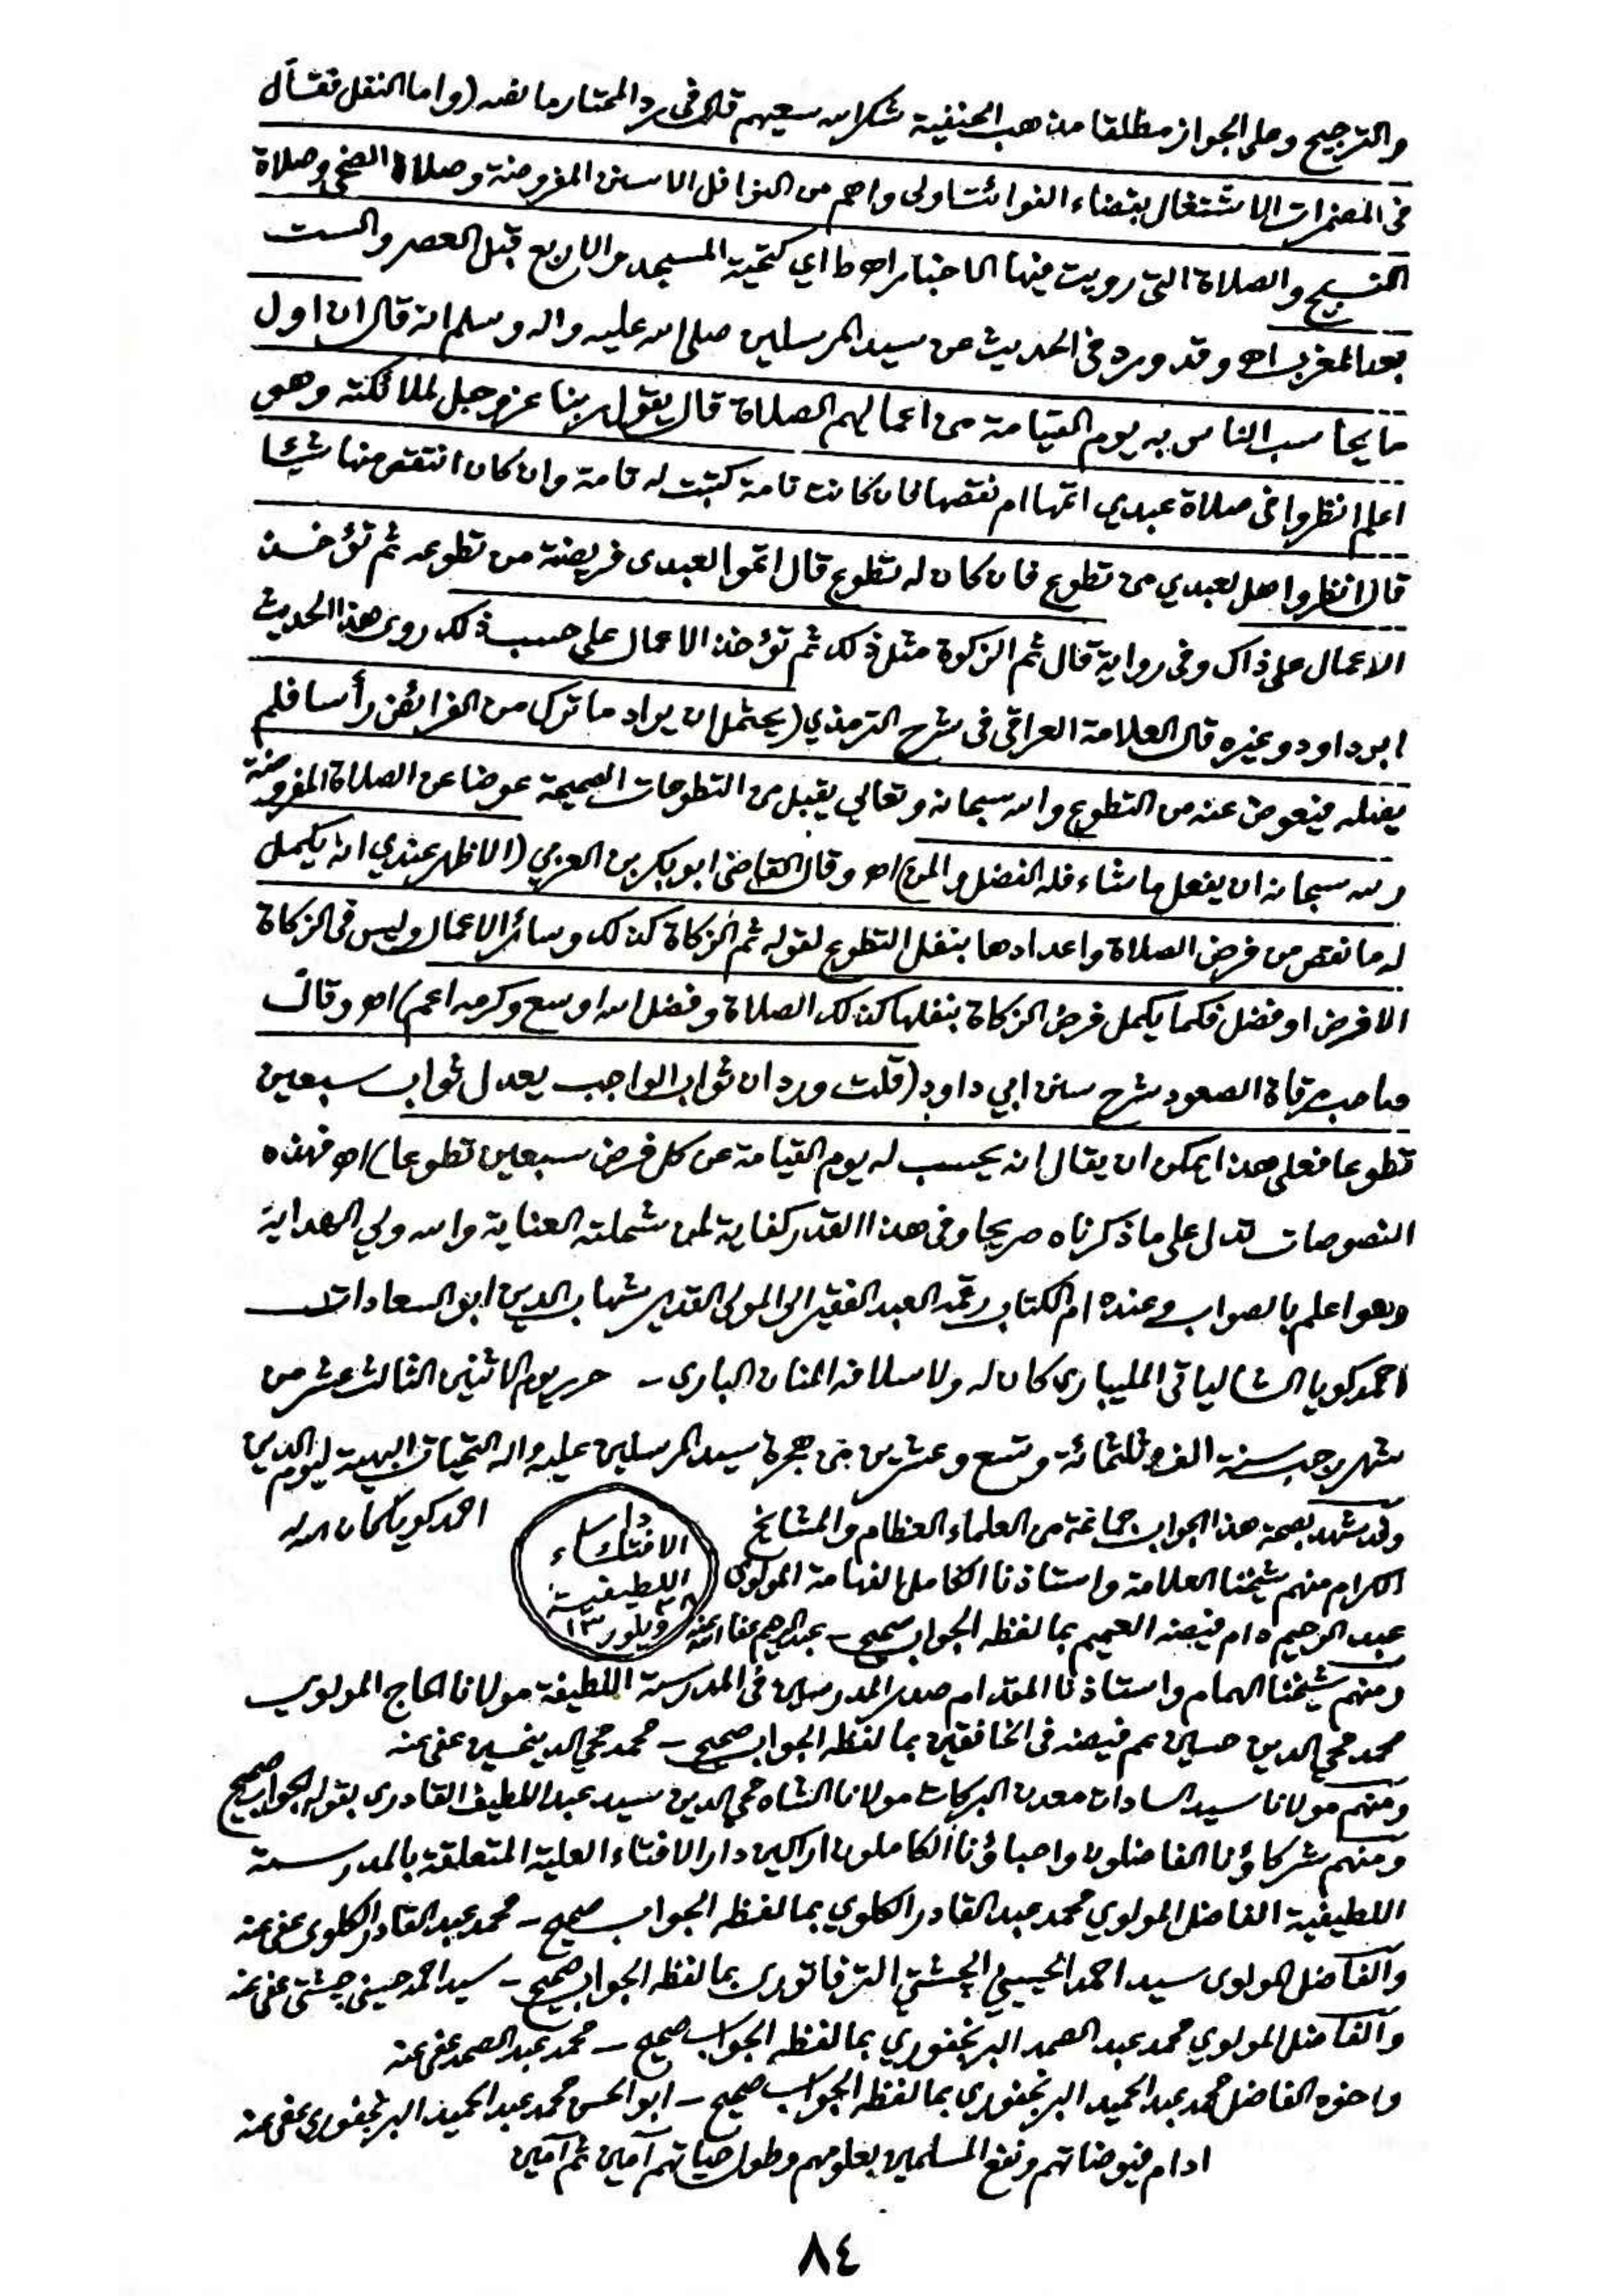 والترجيح وعلى الجواز مطلقا مذهب الحنفية شكر الله سعيهم قال في رد المحتار ما نصه (واما النقل فقال
في المضمرات الاشتغال بقضاء الفوائت اولى واهم من النوافل الا سنن المفروضة وصلاة الضحى وصلاة
التسبيح والصلاة التي رويت فيها الاخبار اه ط اي كتحية المسجد والاربع قبل العصر والست
بعد المغرب اه وقد ورد في الحديث عن سيد المرسلين صلى الله عليه واله وسلم انه قال ان اول
ما يحاسب الناس به يوم القيامة من اعمالهم الصلاة قال يقول ربنا عز وجل لملائكته وهو
اعلم انظروا في صلاة عبدي اتمها ام نقصها فان كانت تامة كتبت له تامة وان كان انتقص منها شيئا
قال انظروا هل لعبدي من تطوع فان كان له تطوع قال اتموا لعبدى فريضته من تطوعه ثم تؤخذ
الاعمال على ذاك وفى رواية قال ثم الزكوة مثل ذلك ثم تؤخذ الاعمال على حسب ذلك روى هذا الحديث
ابو داود وغيره قال العلامة العراقي في شرح الترمذي (يحتمل ان يراد ما ترك من الفرائض رأسا فلم
يفعله فيعوض عنه من التطوع والله سبحانه وتعالى يقبل من التطوعات الصحيحة عوضا عن الصلاة المفروضة
ولله سبحانه ان يفعل ما شاء فله الفضل والمن) اه وقال القاضي ابو بكر بن العربي (الاظهر عندي انه يكمل
له ما نقص من فرض الصلاة واعدادها بنفل التطوع لقوله ثم الزكاة كذلك وسائر الاعمال وليس في الزكاة
الا فرض او فضل فكما يكمل فرض الزكاة بنفلها كذلك الصلاة وفضل الله اوسع وكرمه اعم) اه وقال
صاحب مرقاة الصعود شرح سنن ابي داود (قلت ورد ان ثواب الواجب يعدل ثواب سبعين
تطوعا فعلى هذا يمكن ان يقال انه يحسب له يوم القيامة عن كل فرض سبعين تطوعا) اه فهذه
النصوصات تدل على ما ذكرناه صريحا وفى هذا القدر كفاية لمن شملته العناية والله ولي الهداية
وهو اعلم بالصواب وعنده ام الكتاب رقمه العبد الفقير الى المولى القدير شهاب الدين ابو السعادات
احمد كويا الشالياتي المليباري كان له ولاسلافه المنان الباري - حرر يوم الاثنين الثالث عشر من
شهر رجب سنة الف وثلثمائة وتسع وعشرين من هجرة سيد المرسلين عليه واله التحيات البهية ليوم الدين
احمد كويا كان الله له
وقد شهد بصحة هذا الجواب جماعة من العلماء العظام والمشائخ
دار الافتاء اللطيفية ويلور ١٣
الكرام منهم شيخنا العلامة واستاذنا الكامل الفهامة المولوى
عبد الرحيم دام فيضه العميم بما لفظه الجواب صحيح - عبد الرحيم عفا الله عنه
ومنهم شيخنا الهمام واستاذنا المقدام صدر المدرسين في المدرسة اللطيفة مولانا الحاج المولوي
محمد محي الدين حسين عم فيضه فى الخافقين بما لفظه الجواب صحيح - محمد محي الدين حسين عفى عنه
ومنهم مولانا سيد السادات معدن البركات مولانا الشاه محي الدين سيد عبد اللطيف القادرى بقوله الجواب صحيح
ومنهم شركاؤنا الفاضلون واحباؤنا الكاملون اراكين دار الافتاء العلية المتعلقة بالمدرسة
اللطيفية الفاضل المولوي محمد عبد القادر الكلوي بما لفظه الجواب صحيح - محمد عبد القادر الكلوى عفى عنه
والفاضل المولوى سيد احمد الحسيني الچشتي الترفاتورى بما لفظه الجواب صحيح - سيد احمد حسينى چشتى عفى عنه
والفاضل المولوي محمد عبد الصمد البرنجفوري بما لفظه الجواب صحيح - محمد عبد الصمد عفى عنه
واخوه الفاضل محمد عبد الحميد البرنجفوري بما لفظه الجواب صحيح - ابو الحسن محمد عبد الحميد البرنجفوري عفى عنه
ادام فيوضاتهم ونفع المسلمين بعلومهم وطول حياتهم آمين ثم آمين
٨٤